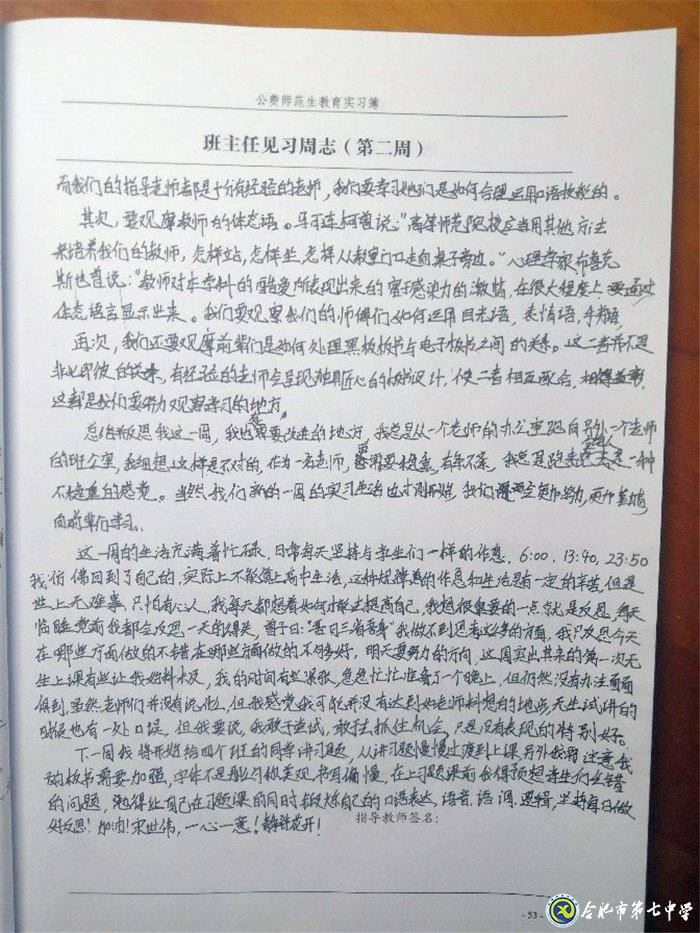 公费师范生教育实习簿
班主任见习周志（第二周）
而我们的指导老师都是十分有经验的老师，我们要学习她们是如何合理运用口语技能的。
其次，要观摩教师的体态语。马可连柯曾说："高等师范院校应当用其他方法
来培养我们的教师，怎样站，怎样坐，怎样从教室门口走向桌子旁边。"心理学家布鲁克
斯也曾说："教师对本学科的酷爱所表现出来的富于感染力的激情，在很大程度上要通过
体态语言显示出来。我们要观察我们的师傅们如何运用目光语，表情语，手势语
再次，我们还要观摩前辈们是如何处理黑板板书与电子板书之间的关系。这二者并不是
非此即彼的关系，有经验的老师会呈现独具匠心的板书设计，使二者相互融合，相得益彰，
这都是我们要努力观察学习的地方。
总结反思我这一周，我也有需要改进的地方，我总是从一个老师的办公室跑向另外一个老师
的办公室，我细想这样是不对的，作为一名老师，需要稳重，有条不紊，我总是跑来跑去给人一种
不稳重的感觉。当然，我们新的一周的实习生活也才刚开始，我们要更加努力，更加
向前辈们学习。
这一周的生活充满着忙碌，日常每天坚持与学生们一样的作息，6:00，13:40，23:50
我仿佛回到了自己的，实际上不能算上高中生活，这种规律的作息和生活是有一定的辛苦，但是
世上无难事，只怕有心人，我每天都想着如何才能去提高自己，我想很重要的一点就是反思，每天
临睡觉前我都会反思一天的得失，曾子曰："吾日三省吾身"我做不到思考这么多的方面，我只反思今天
在哪些方面做的不错，在哪些方面做的不够好，明天要努力的方向，这周突出其来的第一次无
生上课有些让我始料未及，我的时间有些紧张，急急忙忙准备了一个晚上，但仍然没有办法面面
俱到，虽然老师们并没有说什么，但我感觉我可能并没有达到她老师料想的地步，无生试讲的
时候也有一处口误，但我要说，我敢于尝试，敢于去抓住机会，只是没有表现的特别好。
下一周我将开始给四个班的同学讲习题，从讲习题慢慢过渡到上课，另外我需注意我
的板书需要加强，字体不是那么的美观，书写偏慢，在上习题课前我得预想学生们会错
的问题，也得让自己在习题课的同时锻炼自己的口语表达，语音，语调，逻辑，坚持每日做
好反思！加油！宋世伟，一心一意！静待花开！
指导教师签名：
- 53 -
合肥市第七中学